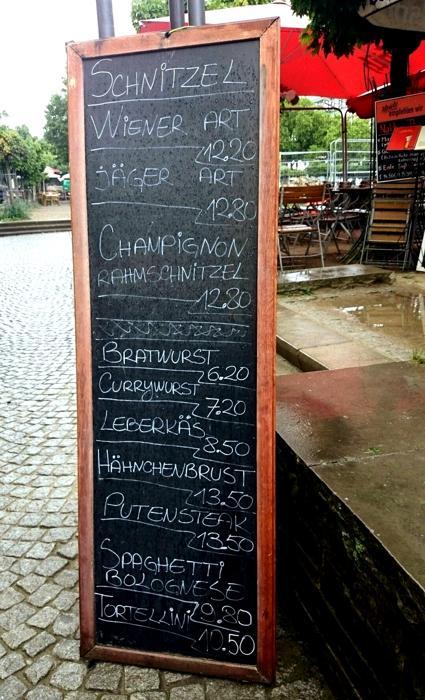 SCHNITZEL
WIENER ART
12.20
JÄGER ART
12.80
CHAMPIGNON
RAHMSCHNITZEL
12.80
BRATWURST
6.20
CURRYWURST
7.20
LEBERKÄS
8.50
HÄHNCHENBRUST
13.50
PUTENSTEAK
13.50
SPAGHETTI
BOLOGNESE
9.80
TORTELLINI
10.50